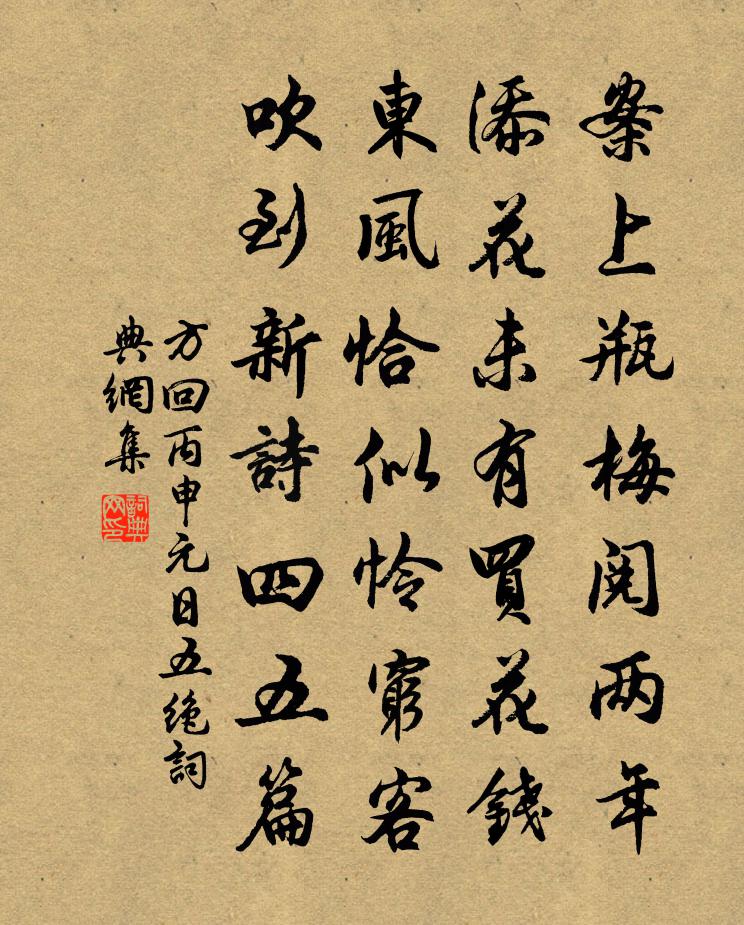 案上瓶梅閱两年
添花未有買花錢
東風恰似怜窮客
吹到新詩四五篇
方回丙申元日五绝詞
典網集
詞典网印